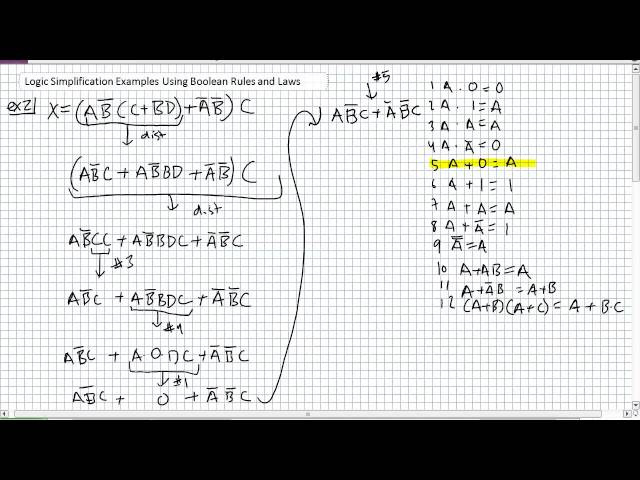 Logic Simplification Examples Using Boolean Rules and Laws
ex2| X = (AB̅(C+BD) + A̅B̅) C
dist
(AB̅C + AB̅BD + A̅B̅) C
dist
AB̅CC + AB̅BDC + A̅B̅C
#3
AB̅C + AB̅BDC + A̅B̅C
#4
AB̅C + A0DC + A̅B̅C
#1
AB̅C + 0 + A̅B̅C
#5
AB̅C + A̅B̅C
1 A · 0 = 0
2 A · 1 = A
3 A · A = A
4 A · A̅ = 0
5 A + 0 = A
6 A + 1 = 1
7 A + A = A
8 A + A̅ = 1
9 A̿ = A
10 A+AB = A
11 A+A̅B = A+B
12 (A+B)(A+C) = A + BC